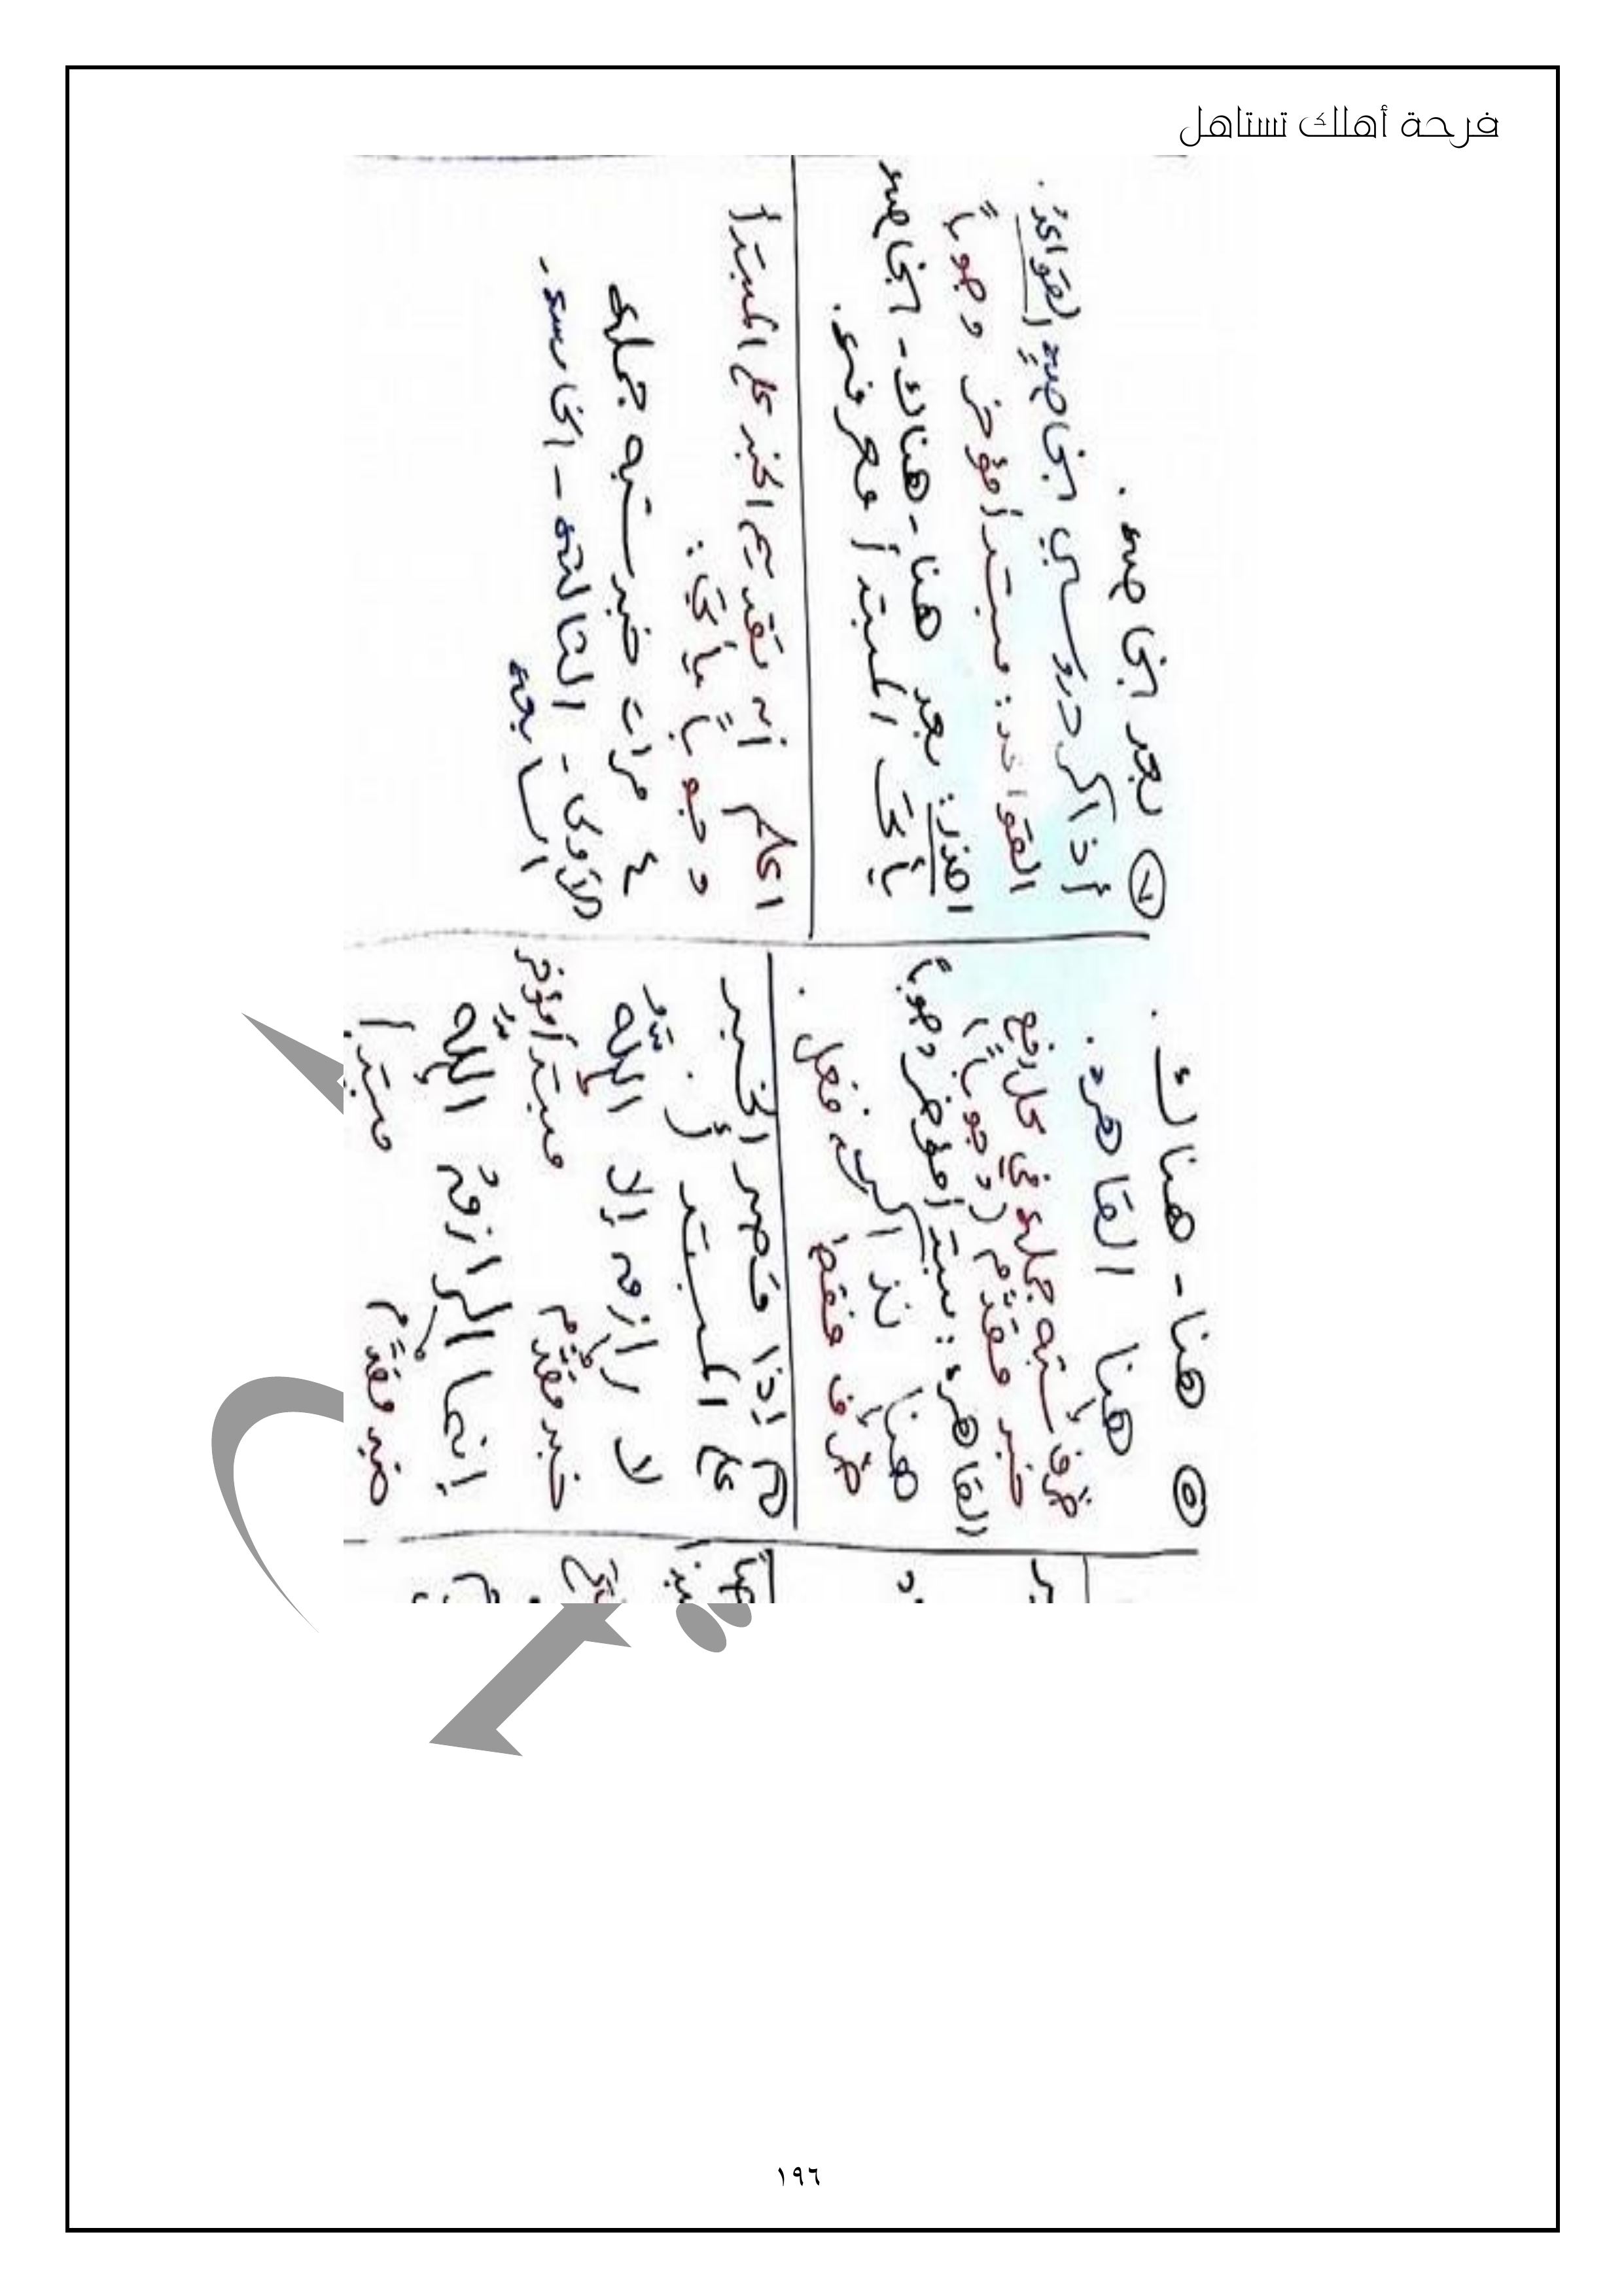 فرحة أهلك تستاهل
٥ هنا - هناك .
هنا القاهرة .
ظرف شبه جملة في محل رفع
خبر مقدّم (وجوباً)
القاهرة : مبتدأ مؤخر وجوباً
هنا نذاكر فنعل .
ظرف فقط
إذا قصر الخبر
على المبتدأ .
لا رازق إلا اللّه
خبر مقدّم مبتدأ مؤخر
إنما الرازق اللّه
خبر مقدّم مبتدأ
٧ بعد بخاصة .
أذاكر دروسي بخاصةٍ القواعدُ .
القواعد : مبتدأ مؤخر وجوباً
احذر : بعد هنا - هناك - بخاصة
يأتي المبتدأ معرفة .
اعلم أن تقديم الخبر على المبتدأ
وجوباً يأتي :
٤ مرات خبر شبه جملة
الأولى - الثالثة - الخامسة -
السابعة
١٩٦